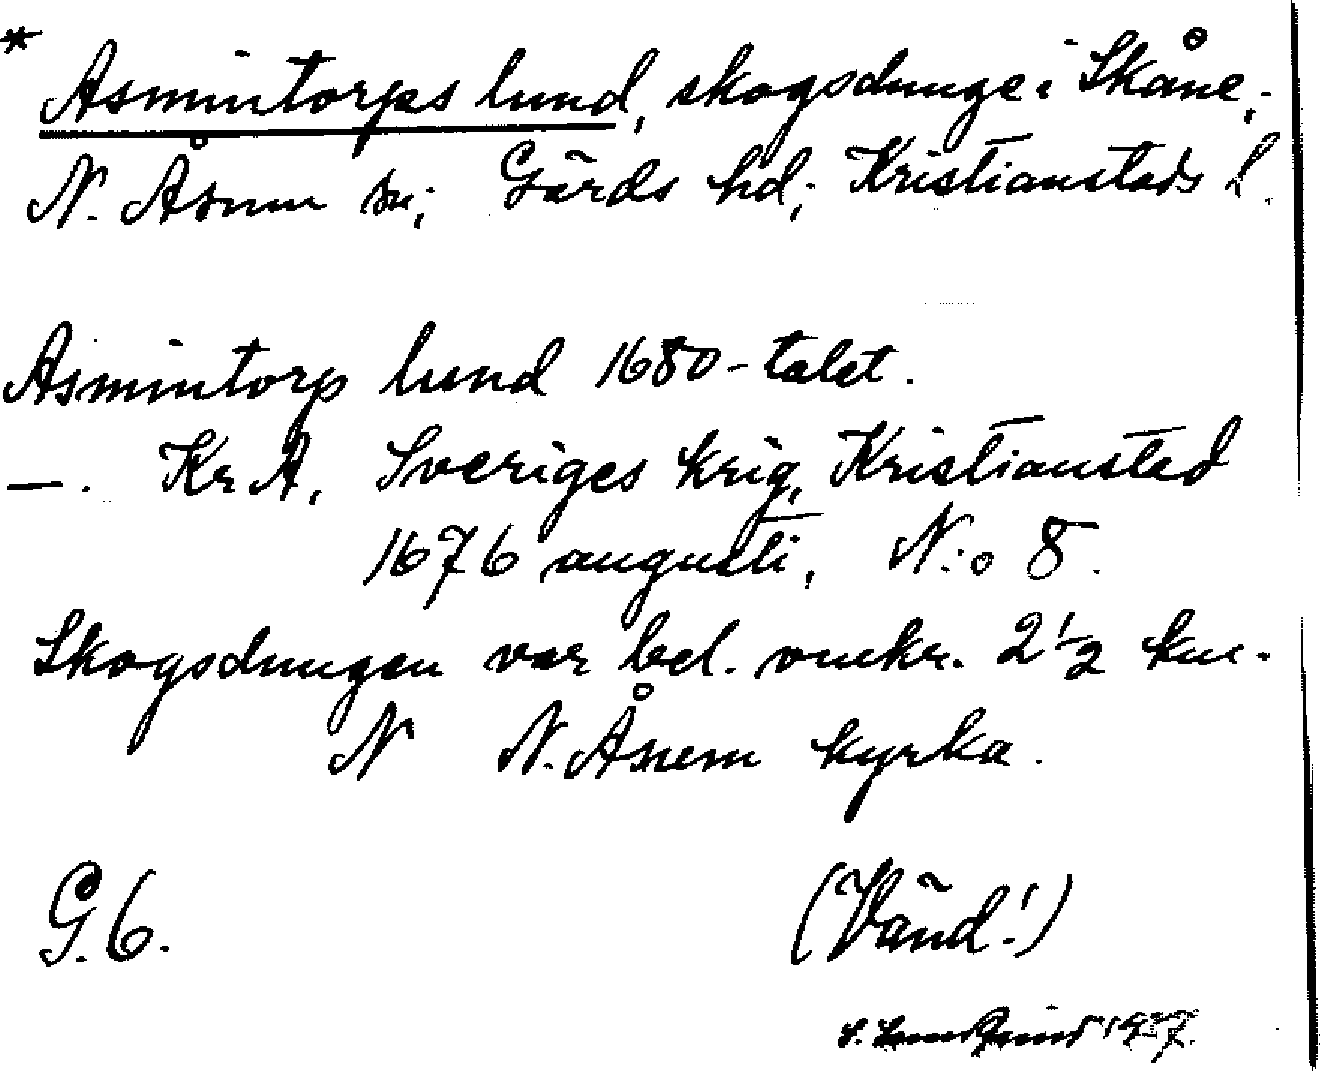 * Asmintorps lund, skogsdunge i Skåne,
N. Åsum sn; Gärds hd; Kristianstads l.
Asmintorp lund 1680-talet.
—. KrA, Sveriges krig, Kristianstad
1676 augusti, N:o 8.
Skogsdungen var bel. omkr. 2 1/2 km.
N N. Åsum kyrka.
G. 6. (Vänd!)
1927.